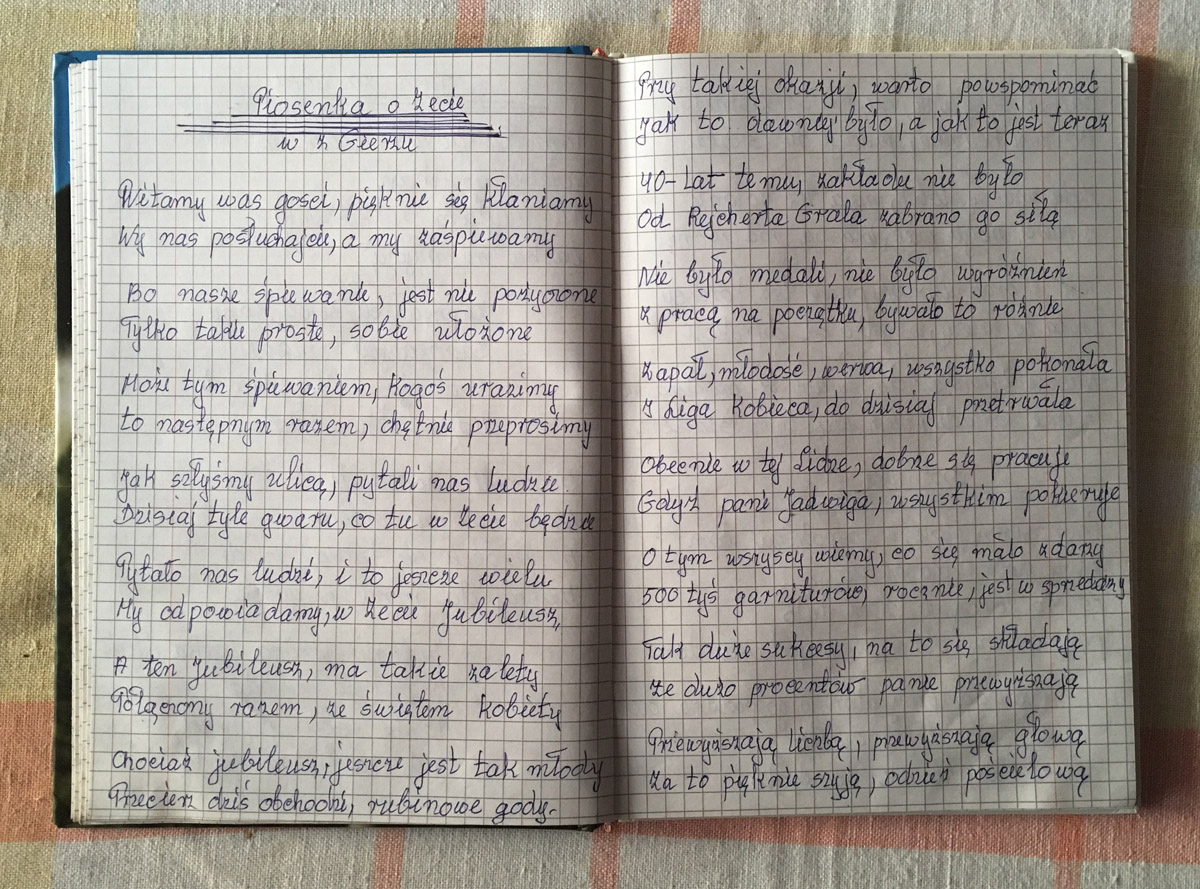 Piosenka o Zecie
w z Gierzu
Witamy was gości, pięknie się kłaniamy
Wy nas posłuchajcie, a my zaśpiewamy
Bo nasze śpiewanie, jest nie pożyczone
Tylko takie proste, sobie ułożone
Może tym śpiewaniem, kogoś urazimy
to następnym razem, chętnie przeprosimy
Jak szłyśmy ulicą, pytali nas ludzie.
Dzisiaj tyle gwaru, co tu w Zecie będzie
Pytało nas ludzi, i to jeszcze wielu
My odpowiadamy, w Zecie Jubileusz,
A ten Jubileusz, ma takie zalety
Połączony razem, ze świętem kobiety
Chociaż jubileusz, jeszcze jest tak młody
Przecierz dziś obchodzi, rubinowe gody.
Przy takiej okazji, warto powspominać
Jak to dawniej było, a jak to jest teraz
40-lat temu, zakładu nie było
Od Rejcherta Grala zabrano go siłą
Nie było medali, nie było wyróżnień
Z pracą na początku, bywało to różnie
Zapał, młodość, werwa, wszystko pokonała
I Liga Kobieca, do dzisiaj przetrwała
Obecnie w tej Lidze, dobrze się pracuje
Gdyż pani Jadwiga, wszystkim pokieruje
O tym wszyscy wiemy, co się mało zdarzy
500 tyś garniturów, rocznie, jest w sprzedaży
Tak duże sukcesy, na to się składają
Ze dużo procentów panie przewyższają
Przewyższają liczbą, przewyższają głową
Za to pięknie szyją, odzież pościelową